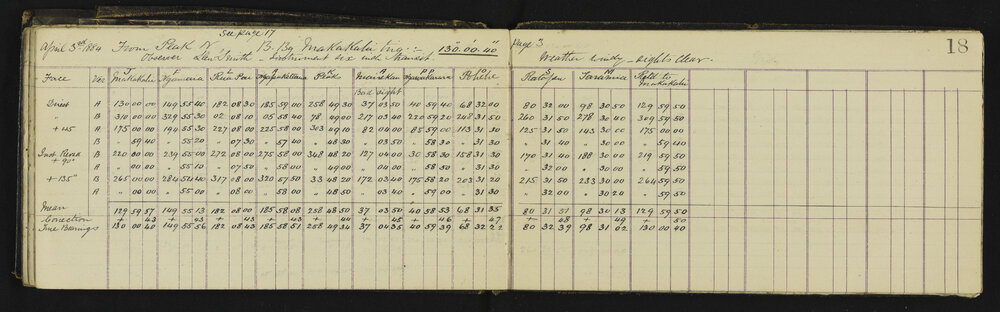 see page 17
April 3rd 1884 From Peak W B. Bg Makakahi Trig := 130° 00' 40" Page 3 18
Observer Llew Smith – Instrument six inch Weather windy – sights clear
Face Ver Makakahi Ngamaia Peak Return to Makakahi
Bad sight
Direct A 130 00 00 149 55 40 182 08 30 185 59 00 258 49 30 37 03 50 40 59 40 68 32 00 80 32 00 98 30 50 129 59 50
" B 310 00 00 329 55 30 02 08 10 05 58 40 78 49 00 217 03 40 220 59 20 248 31 50 260 31 50 278 30 40 309 59 50
+ 45 A 175 00 00 194 55 30 227 08 00 225 58 00 303 49 10 82 04 00 85 59 00 113 31 30 125 31 50 143 30 00 175 00 00
B " 59 40 " 55 20 " 07 30 " 57 40 " 48 30 " 03 50 " 58 30 " 31 30 " 31 40 " 30 00 " 59 40
Inst. Revsd + 90° B 220 00 00 239 55 00 272 08 00 275 58 00 348 48 20 127 04 00 30 58 30 158 31 30 170 31 40 188 30 00 219 59 50
A " 00 00 " 55 10 " 07 50 " 58 00 " 49 00 " 04 00 " 58 50 " 31 30 " 32 00 " 30 00 " 59 50
+ 135° B 265 00 00 284 54 40 317 08 00 320 57 50 33 48 20 172 03 40 175 58 20 203 31 20 215 31 50 233 30 00 264 59 50
A " 00 00 " 55 00 " 08 00 " 58 00 " 48 50 " 03 40 " 59 00 " 31 30 " 32 00 " 30 20 " 59 50
Mean 129 59 57 149 55 13 182 08 00 185 58 08 258 48 50 37 03 50 40 58 53 68 31 35 80 31 51 98 30 13 129 59 50
Correction + 43 + 43 + 43 + 43 + 44 + 45 + 46 + 47 + 48 + 49 + 50
True Bearings 130 00 40 149 55 56 182 08 43 185 58 51 258 49 34 37 04 35 40 59 39 68 32 22 80 32 39 98 31 02 130 00 40